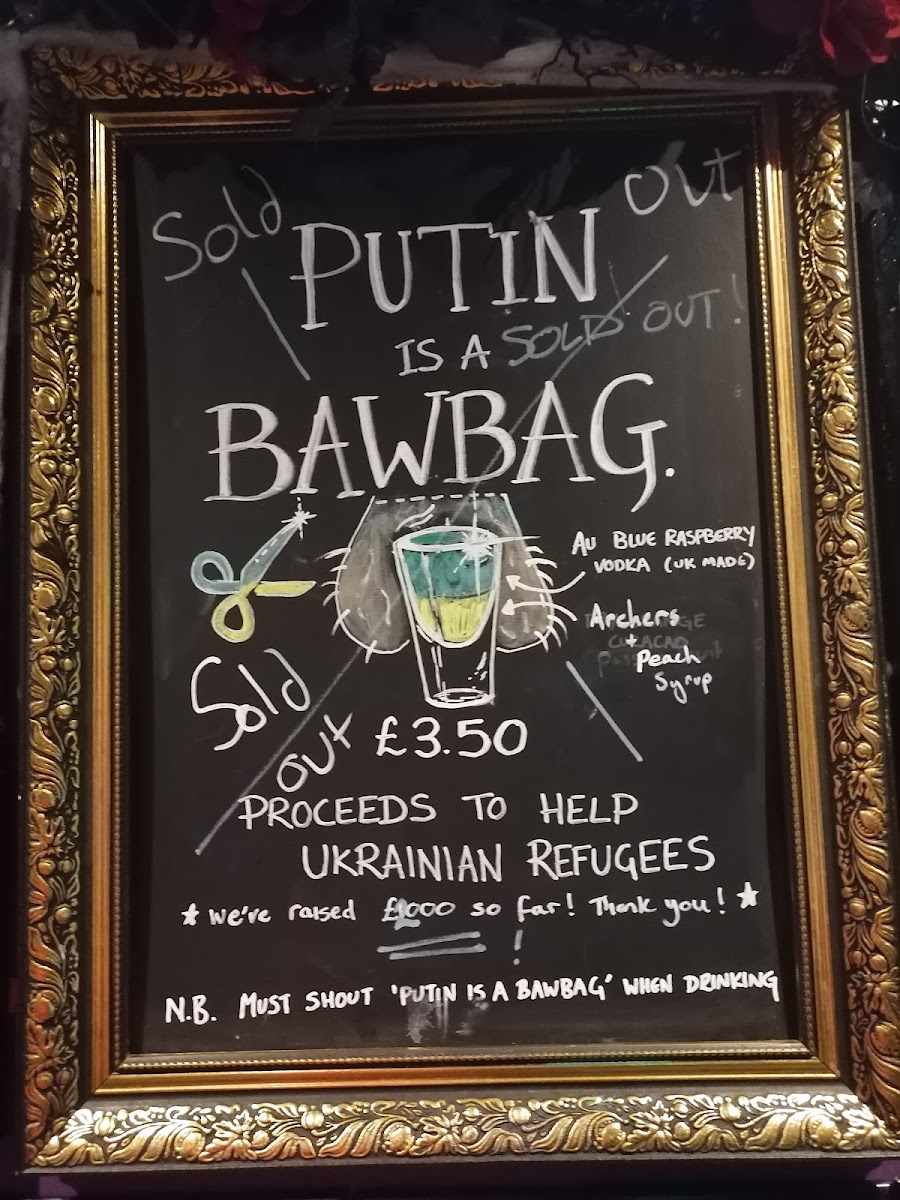 Sold
OUT
PUTIN
IS A SOLD OUT!
BAWBAG.
AU BLUE RASPBERRY
VODKA (UK MADE)
Archers
+
Peach
Syrup
Sold
OUT
£3.50
PROCEEDS TO HELP
UKRAINIAN REFUGEES
* We've raised £1000 so far! Thank you! *
N.B. MUST SHOUT 'PUTIN IS A BAWBAG' WHEN DRINKING